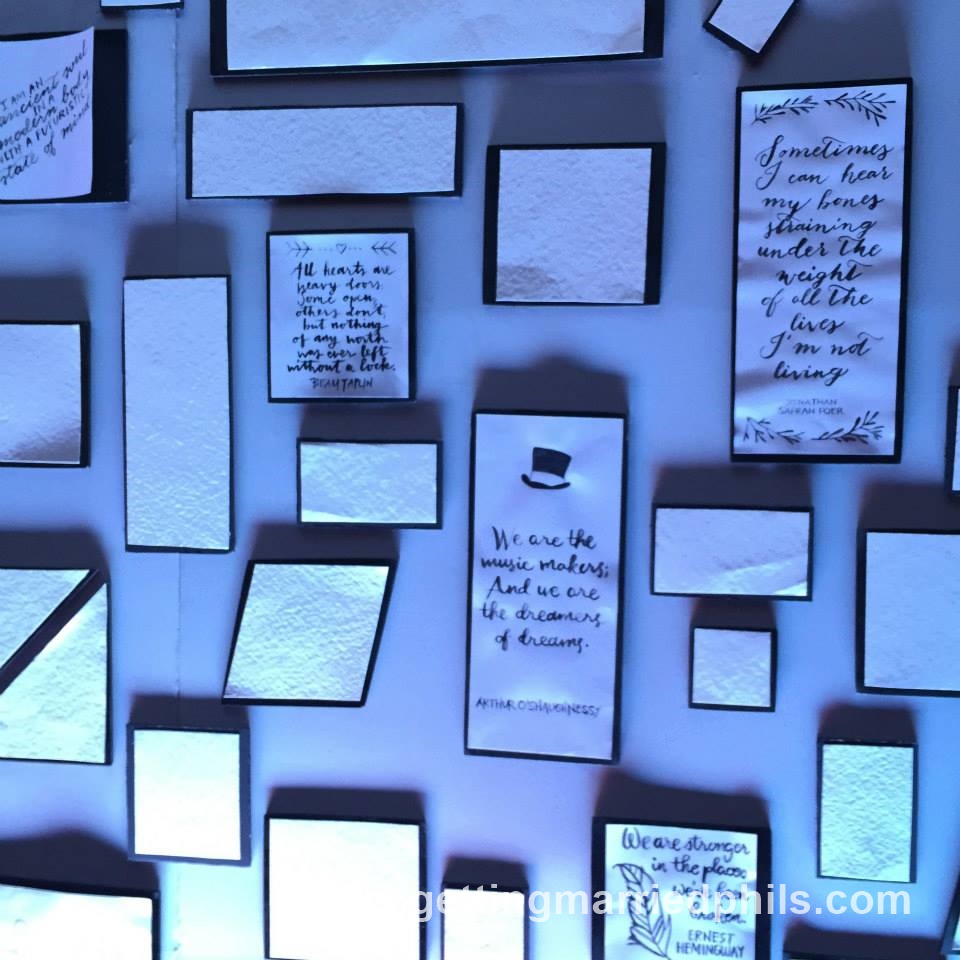 I AM AN
ancient soul
IN A
modern body
WITH A FUTURISTIC
state of mind
Sometimes
I can hear
my bones
straining
under the
weight
of all the
lives
I'm not
living
JONATHAN
SAFRAN FOER
All hearts are
heavy doors.
Some open,
others don't,
but nothing
of any worth
was ever left
without a lock.
BEAU TAPLIN
We are the
music makers;
And we are
the dreamers
of dreams.
ARTHUR O'SHAUGHNESSY
We are stronger
in the places
we've been
broken.
ERNEST
HEMINGWAY
gettingmarriedphils.com